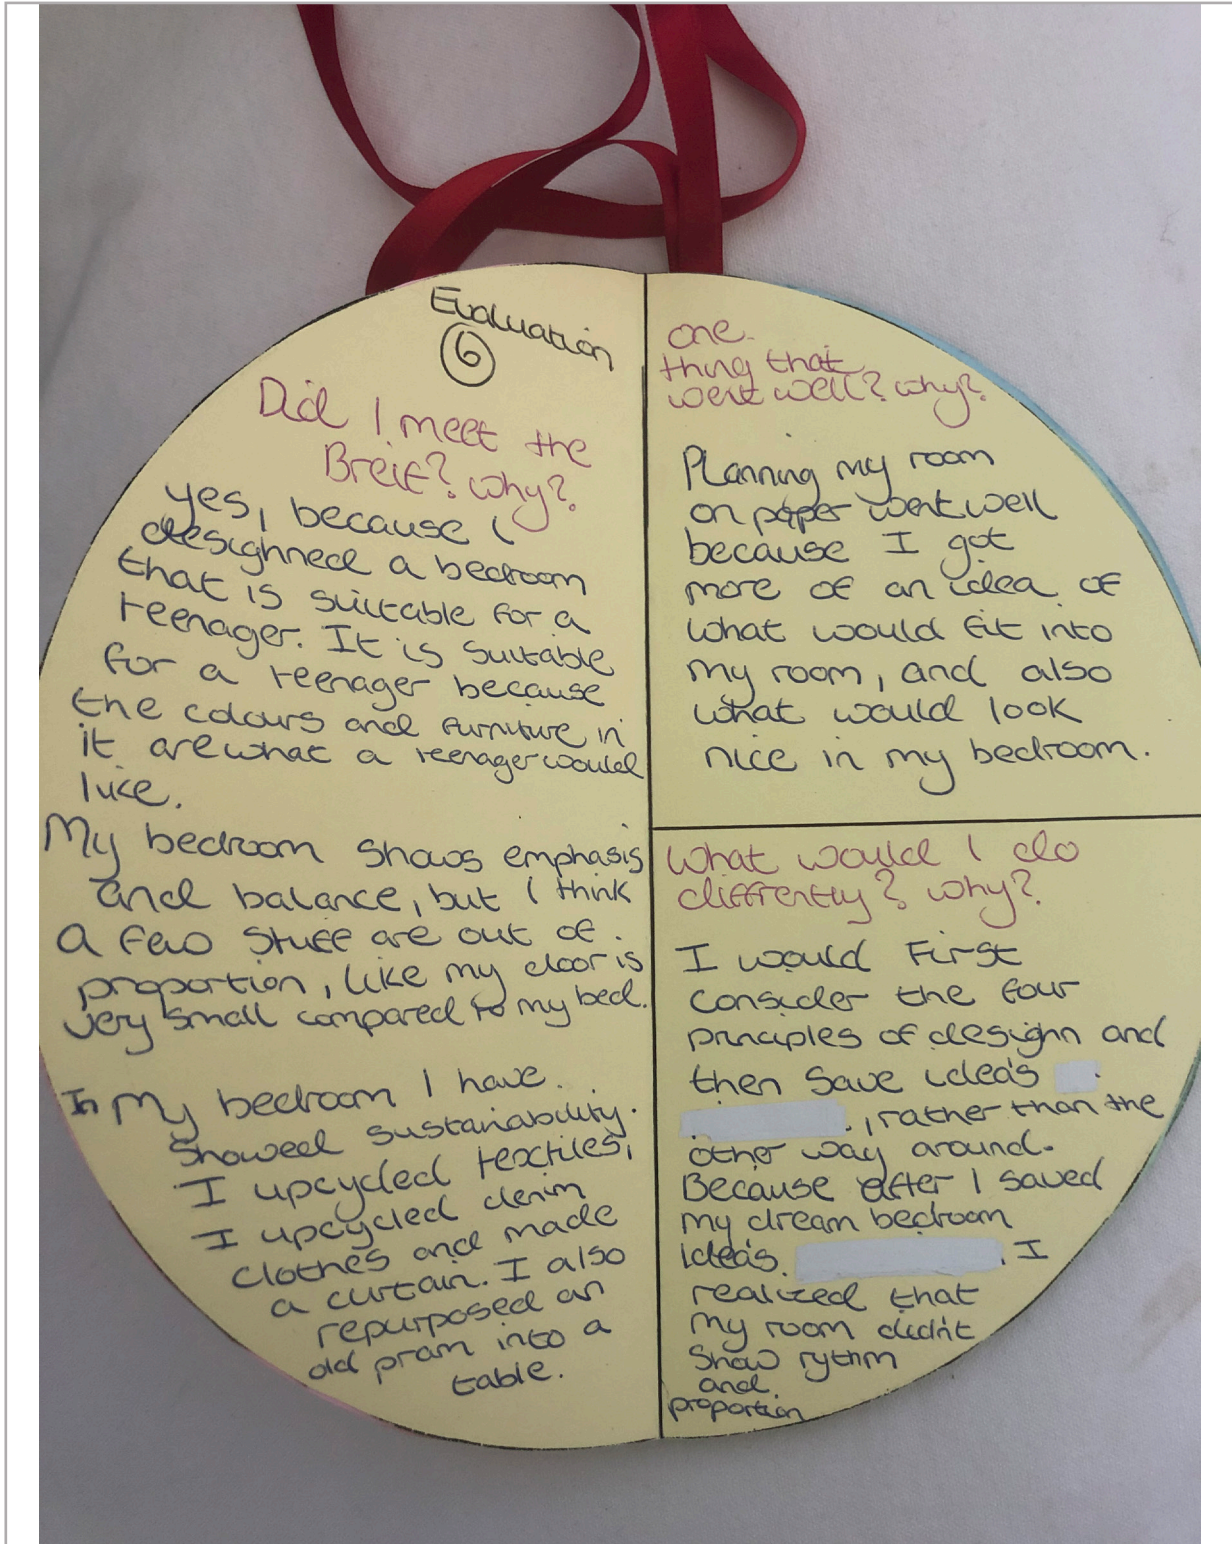 Evaluation
6
Did I meet the
Breif? why?
yes, because I
desighned a bedroom
that is suitable for a
teenager. It is suitable
for a teenager because
the colours and furniture in
it are what a teenager would
like.
My bedroom shows emphasis
and balance, but I think
a few stuff are out of
proportion, like my door is
very small compared to my bed.
In My bedroom I have
showed sustainability.
I upcycled textiles,
I upcycled denim
clothes and made
a curtain. I also
repurposed an
old pram into a
table.
one
thing that
went well? why?
Planning my room
on paper went well
because I got
more of an idea of
what would fit into
my room, and also
what would look
nice in my bedroom.
What would I do
diffrently? why?
I would First
consider the four
principles of desighn and
then save ideas
, rather than the
other way around.
Because after I saved
my dream bedroom
ideas. I
realized that
my room didn't
show rythm
and
proportion